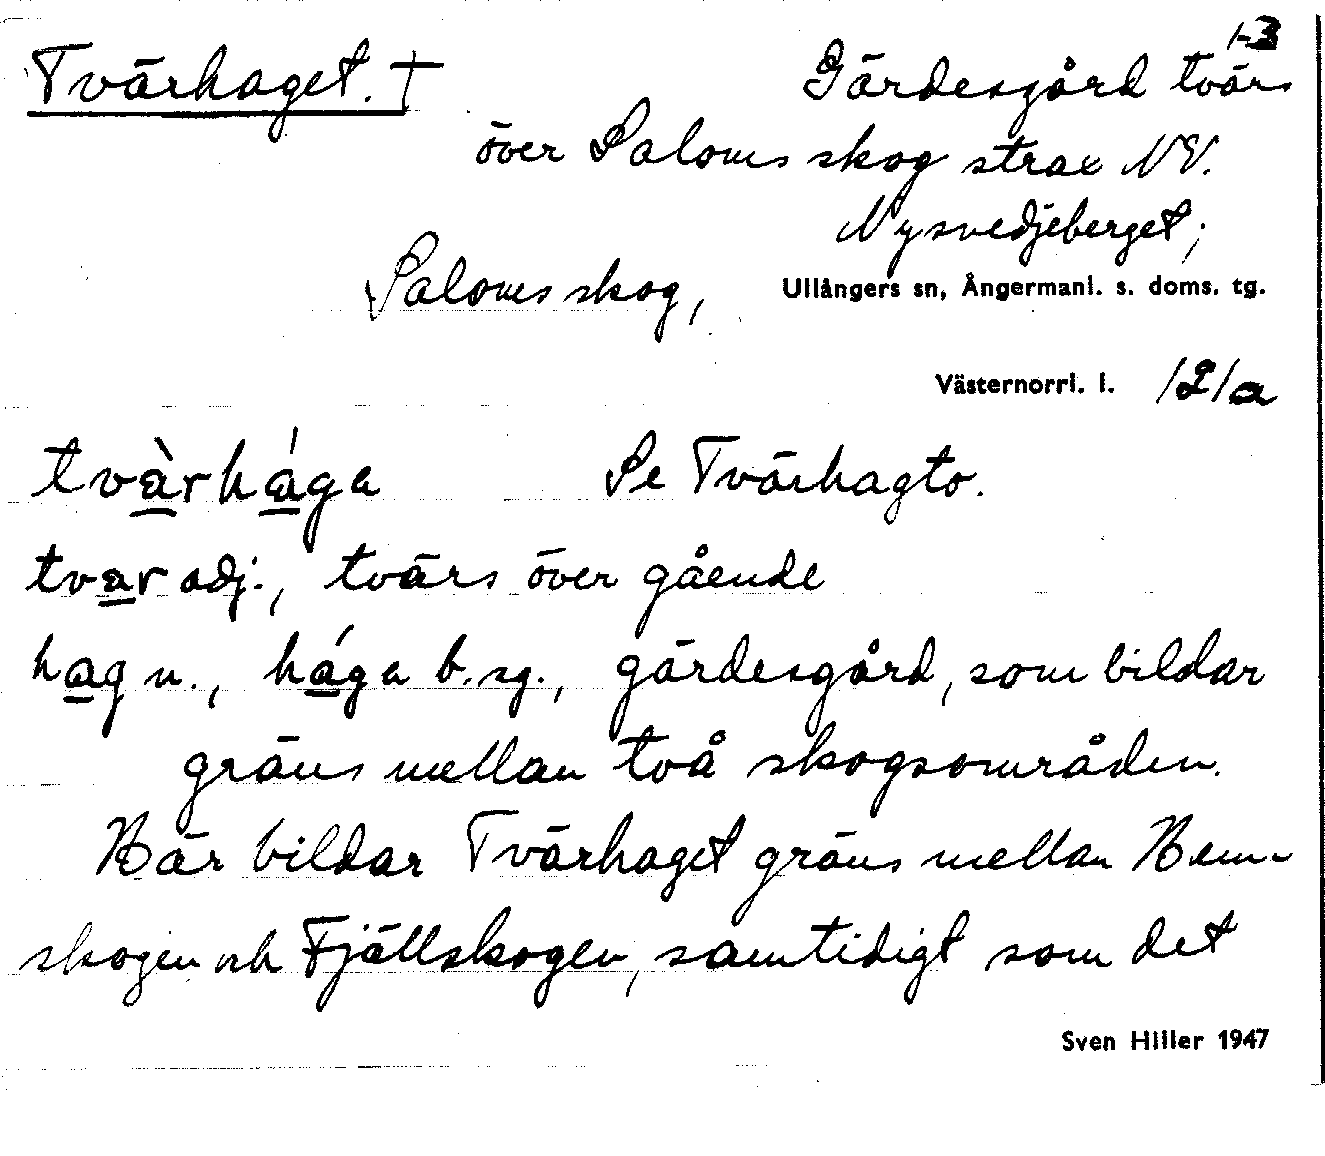 1-3
Tvärhaget. † Gärdesgård tvärs
över Saloms skog strax NV.
Nysvedjeberget;
Saloms skog, Ullångers sn, Ångermanl. s. doms. tg.
Västernorrl. l. 121a
tvàrhága Se Tvärhagto.
tvar adj., tvärs över gående
hag n., hága b.sg., gärdesgård, som bildar
gräns mellan två skogsområden.
Här bildar Tvärhaget gräns mellan Hem-
skogen och Fjällskogen, samtidigt som det
Sven Hiller 1947